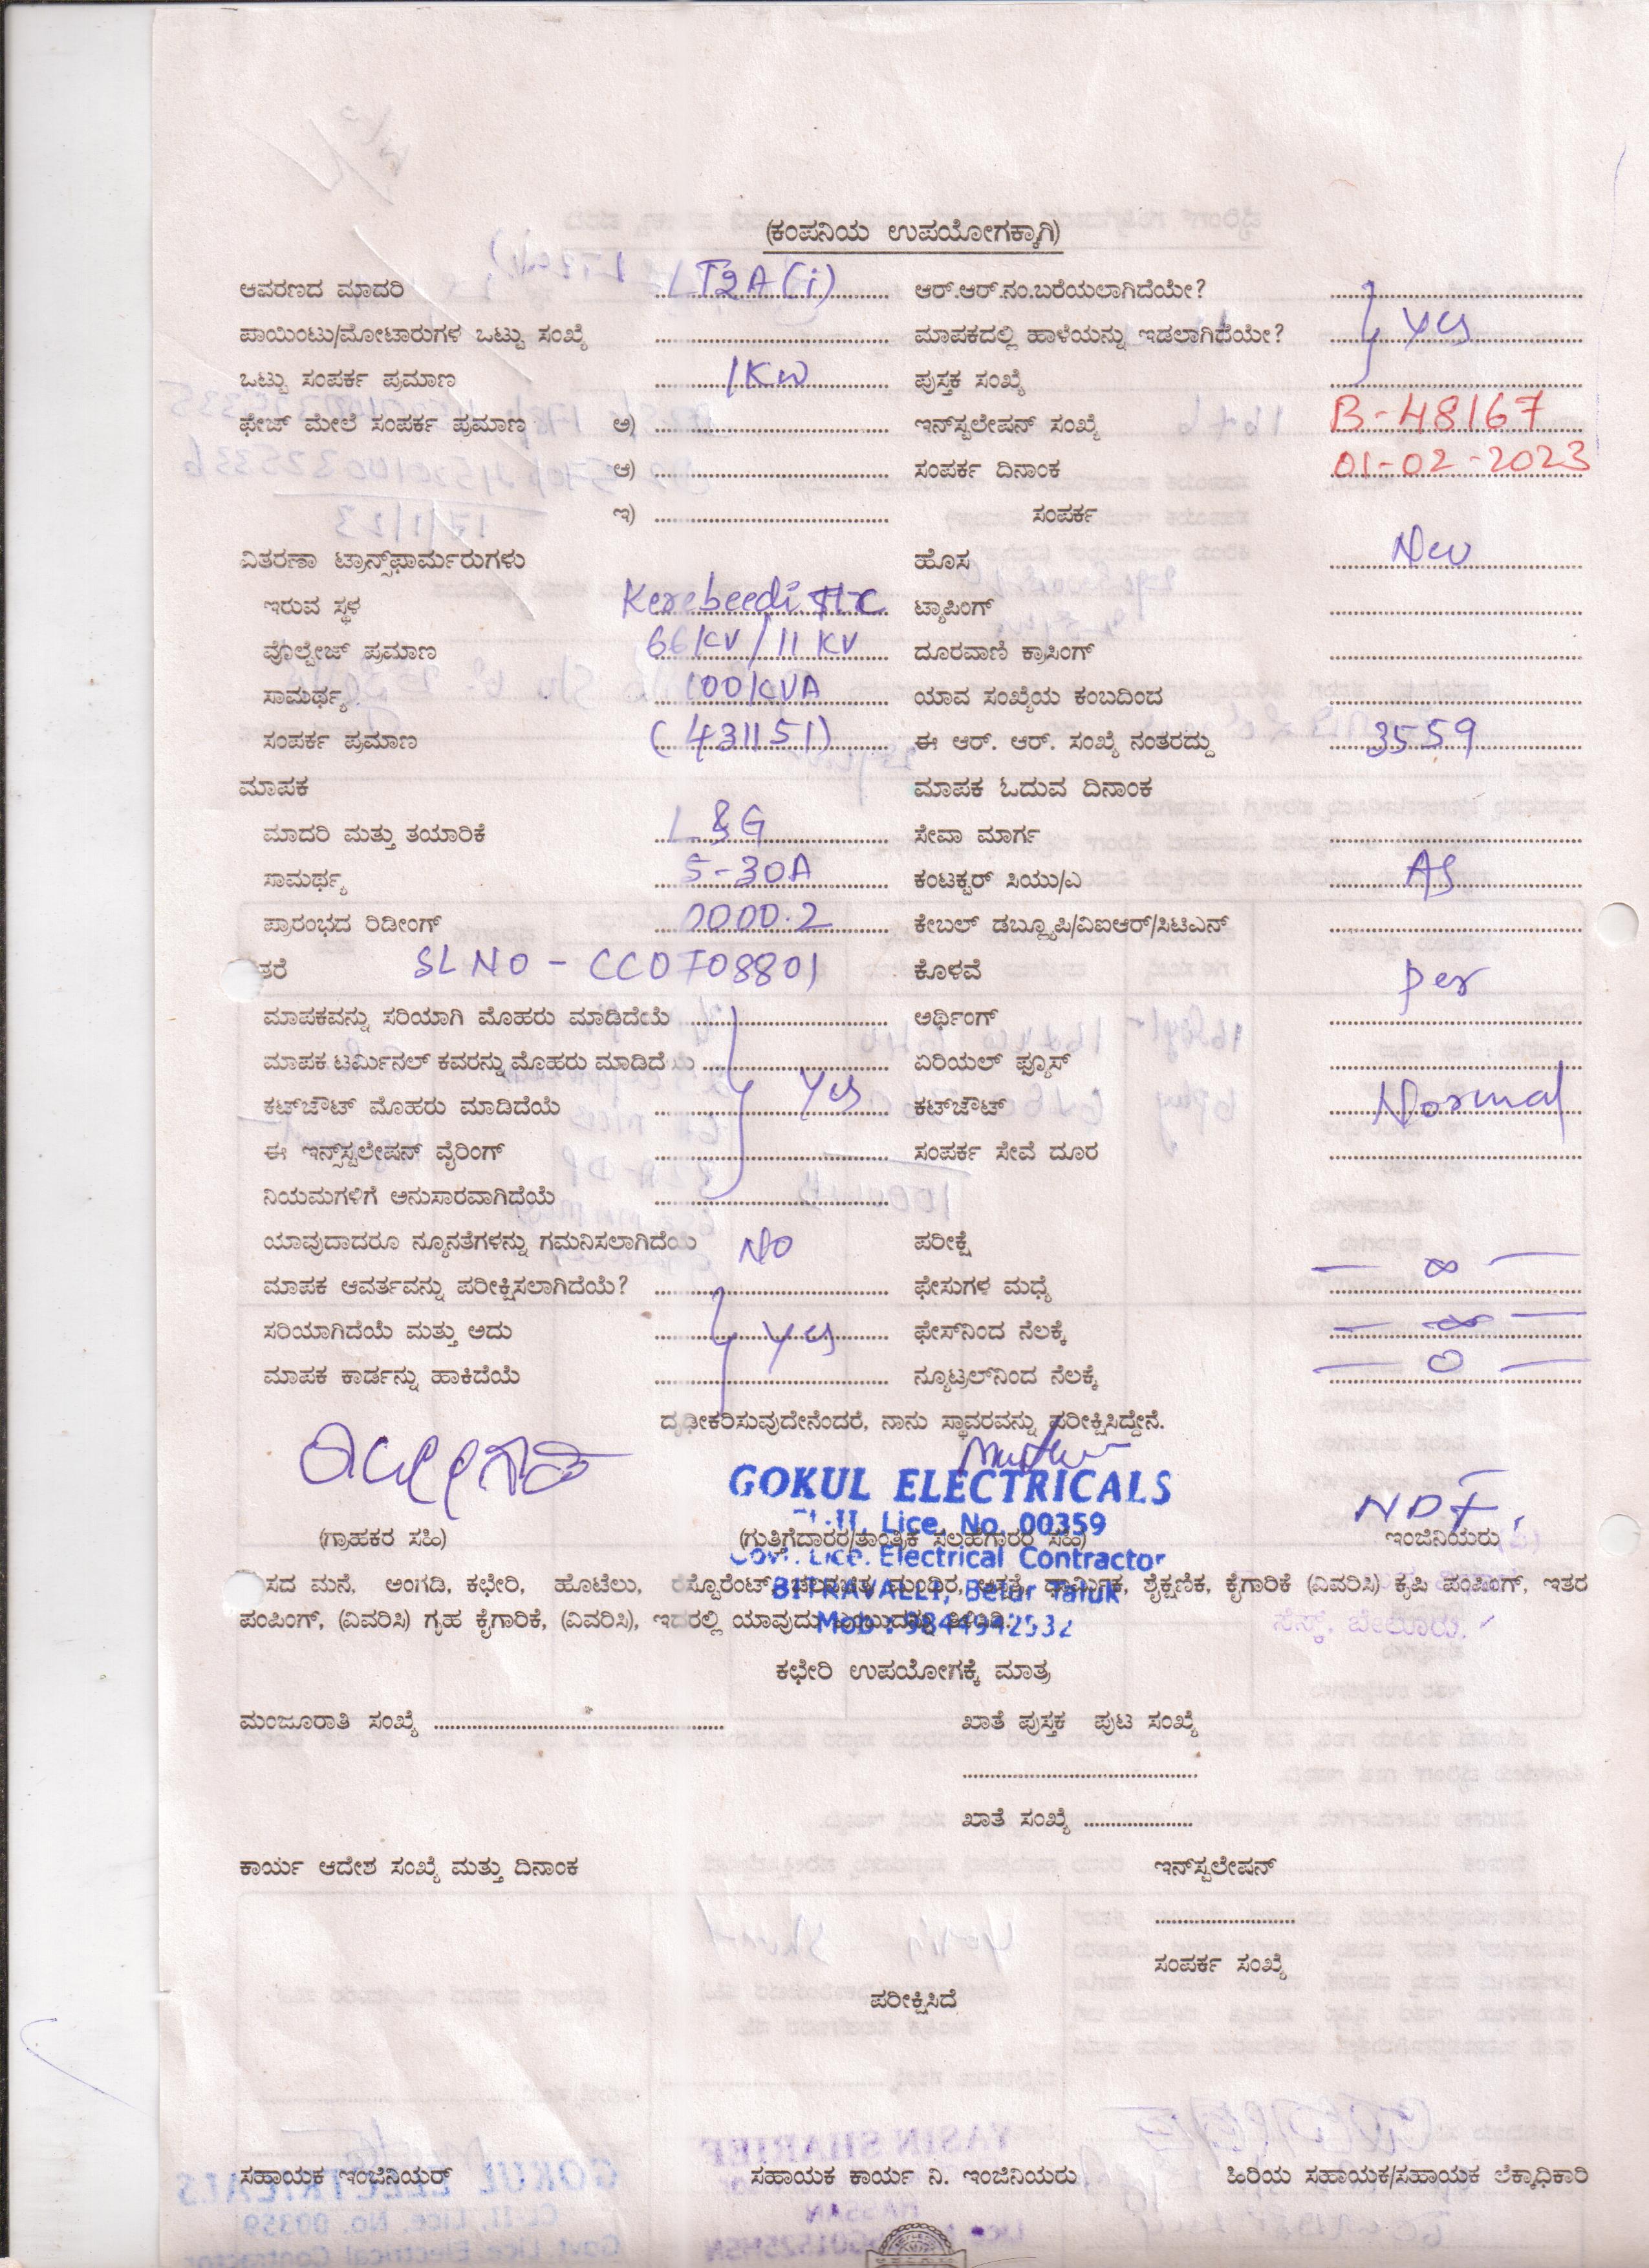 (ಕಂಪನಿಯ ಉಪಯೋಗಕ್ಕಾಗಿ)
ಆವರಣದ ಮಾದರಿ LT2A(i) ಆರ್.ಆರ್.ನಂ.ಬರೆಯಲಾಗಿದೆಯೇ?
ಪಾಯಿಂಟು/ಮೋಟಾರುಗಳ ಒಟ್ಟು ಸಂಖ್ಯೆ ಮಾಪಕದಲ್ಲಿ ಹಾಳೆಯನ್ನು ಇಡಲಾಗಿದೆಯೇ? Yes
ಒಟ್ಟು ಸಂಪರ್ಕ ಪ್ರಮಾಣ 1KW ಪುಸ್ತಕ ಸಂಖ್ಯೆ
ಫೇಜ್ ಮೇಲೆ ಸಂಪರ್ಕ ಪ್ರಮಾಣ ಅ) ಇನ್‌ಸ್ಟಲೇಷನ್ ಸಂಖ್ಯೆ B-48167
ಆ) ಸಂಪರ್ಕ ದಿನಾಂಕ 01-02-2023
ಇ) ಸಂಪರ್ಕ
ವಿತರಣಾ ಟ್ರಾನ್ಸ್‌ಫಾರ್ಮರುಗಳು ಹೊಸ New
ಇರುವ ಸ್ಥಳ Kerebeedi ಟ್ಯಾಪಿಂಗ್
ವೊಲ್ಟೇಜ್ ಪ್ರಮಾಣ 66KV/11KV ದೂರವಾಣಿ ಕ್ರಾಸಿಂಗ್
ಸಾಮರ್ಥ್ಯ 100KVA ಯಾವ ಸಂಖ್ಯೆಯ ಕಂಬದಿಂದ
ಸಂಪರ್ಕ ಪ್ರಮಾಣ (431151) ಈ ಆರ್. ಆರ್. ಸಂಖ್ಯೆ ನಂತರದ್ದು 3559
ಮಾಪಕ ಮಾಪಕ ಓದುವ ದಿನಾಂಕ
ಮಾದರಿ ಮತ್ತು ತಯಾರಿಕೆ L&G ಸೇವಾ ಮಾರ್ಗ
ಸಾಮರ್ಥ್ಯ 5-30A ಕಂಟಕ್ಟರ್ ಸಿಯು/ಎ As
ಪ್ರಾರಂಭದ ರಿಡೀಂಗ್ 0000.2 ಕೇಬಲ್ ಡಬ್ಲ್ಯೂಪಿ/ವಿಐಆರ್/ಸಿಟಿಎನ್
ತರೆ SLNO - CC0708801 ಕೊಳವೆ per
ಮಾಪಕವನ್ನು ಸರಿಯಾಗಿ ಮೊಹರು ಮಾಡಿದೆಯೆ ಅರ್ಥಿಂಗ್
ಮಾಪಕ ಟರ್ಮಿನಲ್ ಕವರನ್ನು ಮೊಹರು ಮಾಡಿದೆಯೆ ಏರಿಯಲ್ ಫ್ಯೂಸ್
ಕಟ್‌ಔಟ್ ಮೊಹರು ಮಾಡಿದೆಯೆ Yes ಕಟ್‌ಔಟ್ Normal
ಈ ಇನ್‌ಸ್ಟಲೇಷನ್ ವೈರಿಂಗ್ ಸಂಪರ್ಕ ಸೇವೆ ದೂರ
ನಿಯಮಗಳಿಗೆ ಅನುಸಾರವಾಗಿದೆಯೆ
ಯಾವುದಾದರೂ ನ್ಯೂನತೆಗಳನ್ನು ಗಮನಿಸಲಾಗಿದೆಯೆ NO ಪರೀಕ್ಷೆ
ಮಾಪಕ ಆವರ್ತವನ್ನು ಪರೀಕ್ಷಿಸಲಾಗಿದೆಯೆ? ಫೇಸುಗಳ ಮಧ್ಯೆ — ∞ —
ಸರಿಯಾಗಿದೆಯೆ ಮತ್ತು ಅದು Yes ಫೇಸ್‌ನಿಂದ ನೆಲಕ್ಕೆ — ∞ —
ಮಾಪಕ ಕಾರ್ಡನ್ನು ಹಾಕಿದೆಯೆ ನ್ಯೂಟ್ರಲ್‌ನಿಂದ ನೆಲಕ್ಕೆ — 0 —
ದೃಢೀಕರಿಸುವುದೇನೆಂದರೆ, ನಾನು ಸ್ಥಾವರವನ್ನು ಪರೀಕ್ಷಿಸಿದ್ದೇನೆ.
GOKUL ELECTRICALS
Lice. No. 00359
NDF.
(ಗ್ರಾಹಕರ ಸಹಿ) (ಗುತ್ತಿಗೆದಾರರ/ತಾಂತ್ರಿಕ ಸಲಹೆಗಾರರ ಸಹಿ) ಇಂಜಿನಿಯರು
Govt. Lice. Electrical Contractor
ಸದ ಮನೆ, ಅಂಗಡಿ, ಕಛೇರಿ, ಹೊಟೆಲು, ರೆಸ್ಟೊರೆಂಟ್ ಧಾರ್ಮಿಕ, ಶೈಕ್ಷಣಿಕ, ಕೈಗಾರಿಕೆ (ವಿವರಿಸಿ) ಕೃಷಿ ಪಂಪಿಂಗ್, ಇತರ
BITRAVALLI, Belur Taluk
ಪಂಪಿಂಗ್, (ವಿವರಿಸಿ) ಗೃಹ ಕೈಗಾರಿಕೆ, (ವಿವರಿಸಿ), ಇದರಲ್ಲಿ ಯಾವುದು
Mob : 9844942532
ಸೆಸ್ಕ್, ಬೇಲೂರು.
ಕಛೇರಿ ಉಪಯೋಗಕ್ಕೆ ಮಾತ್ರ
ಮಂಜೂರಾತಿ ಸಂಖ್ಯೆ ಖಾತೆ ಪುಸ್ತಕ ಪುಟ ಸಂಖ್ಯೆ
ಖಾತೆ ಸಂಖ್ಯೆ
ಕಾರ್ಯ ಆದೇಶ ಸಂಖ್ಯೆ ಮತ್ತು ದಿನಾಂಕ ಇನ್‌ಸ್ಟಲೇಷನ್
ಸಂಪರ್ಕ ಸಂಖ್ಯೆ
ಪರೀಕ್ಷಿಸಿದೆ
ಸಹಾಯಕ ಇಂಜಿನಿಯರ್ ಸಹಾಯಕ ಕಾರ್ಯ ನಿ. ಇಂಜಿನಿಯರು ಹಿರಿಯ ಸಹಾಯಕ/ಸಹಾಯಕ ಲೆಕ್ಕಾಧಿಕಾರಿ